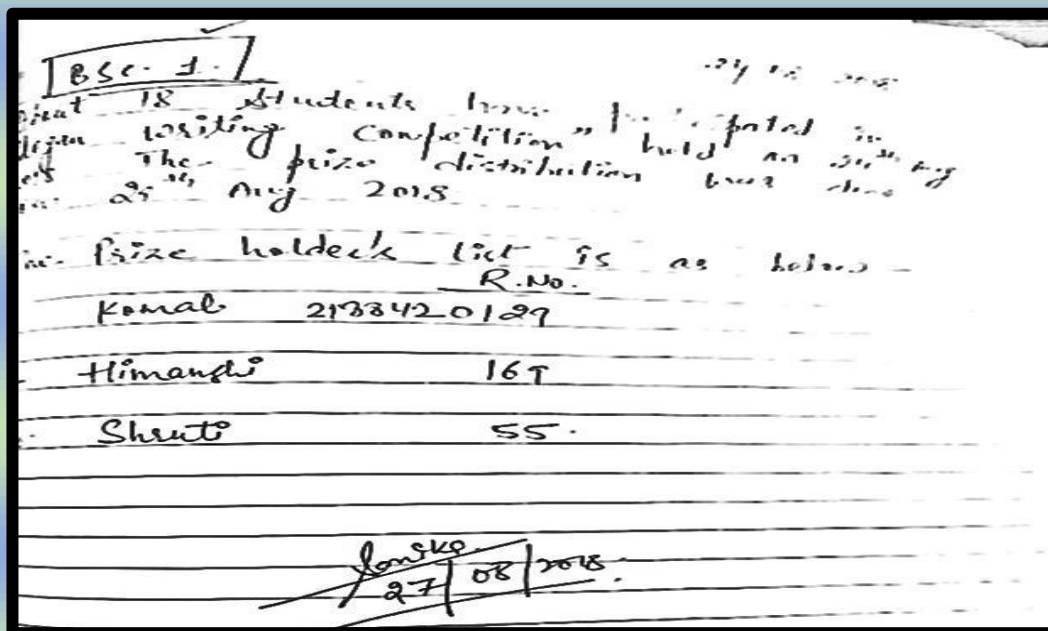 BSC. 1.
18 Students have participated in
writing Competition" held on Aug
The prize distribution was done
25th Aug 2018
Prize holder's list is as below -
R.No.
Komal 2133420129
Himanshi 16T
Shruti 55.
27/08/2018.